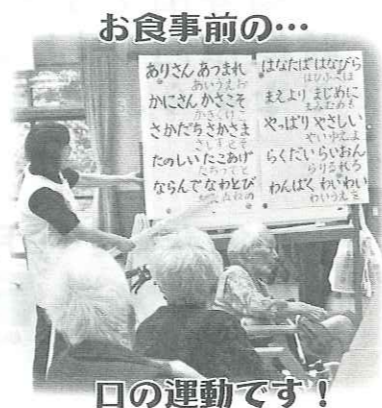 お食事前の…
ありさん あつまれ
あいうえお
かにさん かさこそ
かきくけこ
さかだち さかさま
さしすせそ
たのしい たこあげ
たちつてと
ならんで なわとび
なにぬねの
はなたば はなびら
はひふへほ
まえより まじめに
まみむめも
やっぱり やさしい
やいゆえよ
らくだい らいおん
らりるれろ
わんぱく わいわい
わいうえを
口の運動です!